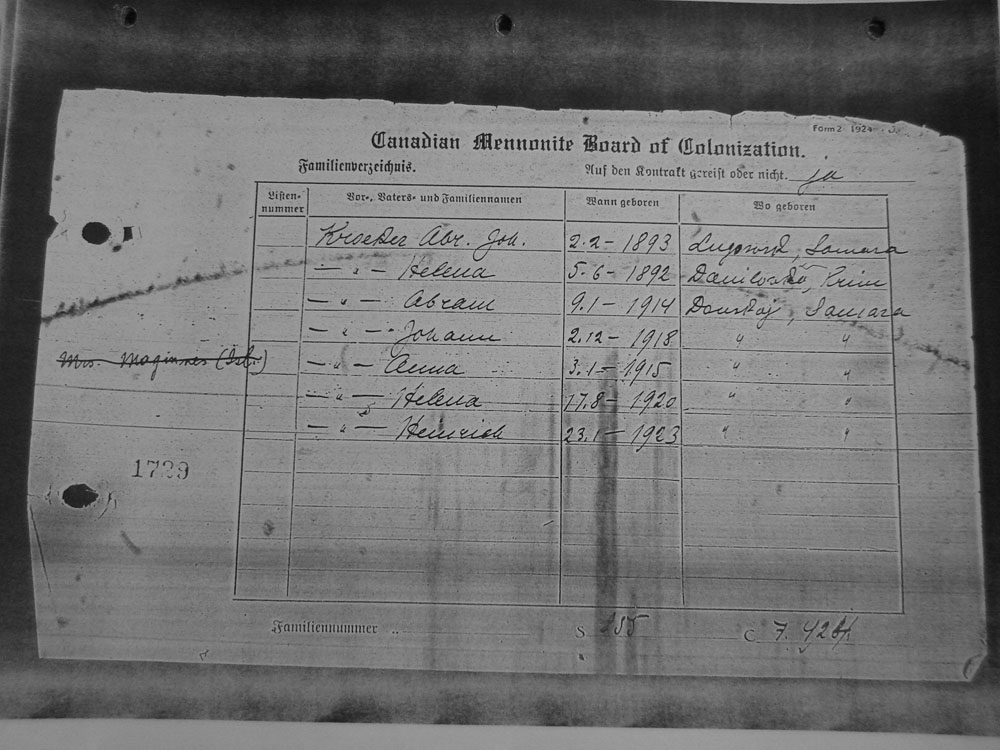 Form 2 1924
Canadian Mennonite Board of Colonization.
Familienverzeichnis. Auf den Kontrakt gereist oder nicht. ja
Listen-nummer Vor-, Vaters- und Familiennamen Wann geboren Wo geboren
Kroeker Abr. Joh. 2.2 – 1893 Samara
— " — Helena 5.6 – 1892 Krim
— " — Abram 9.1 – 1914 Donskoj, Samara
— " — Johann 2.12 – 1918 " "
Mrs. Maginnes
— " — Anna 3.1 – 1915 " "
— " — Helena 17.8 – 1920 " "
— " — Heinrich 23.1 – 1923 " "
1739
Familiennummer .. S. C. 7.